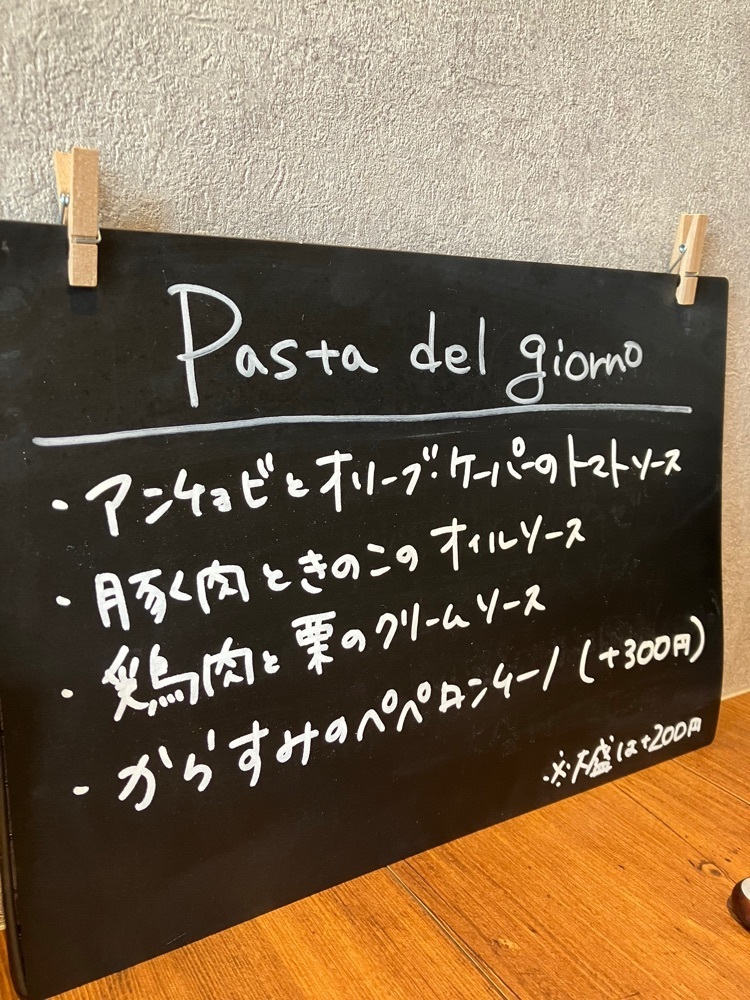 Pasta del giorno
・アンチョビとオリーブ・ケーパーのトマトソース
・豚く肉ときのこのオイルソース
・鶏肉と栗のクリームソース
・からすみのペペロンチーノ (+300円)
※大盛は+200円